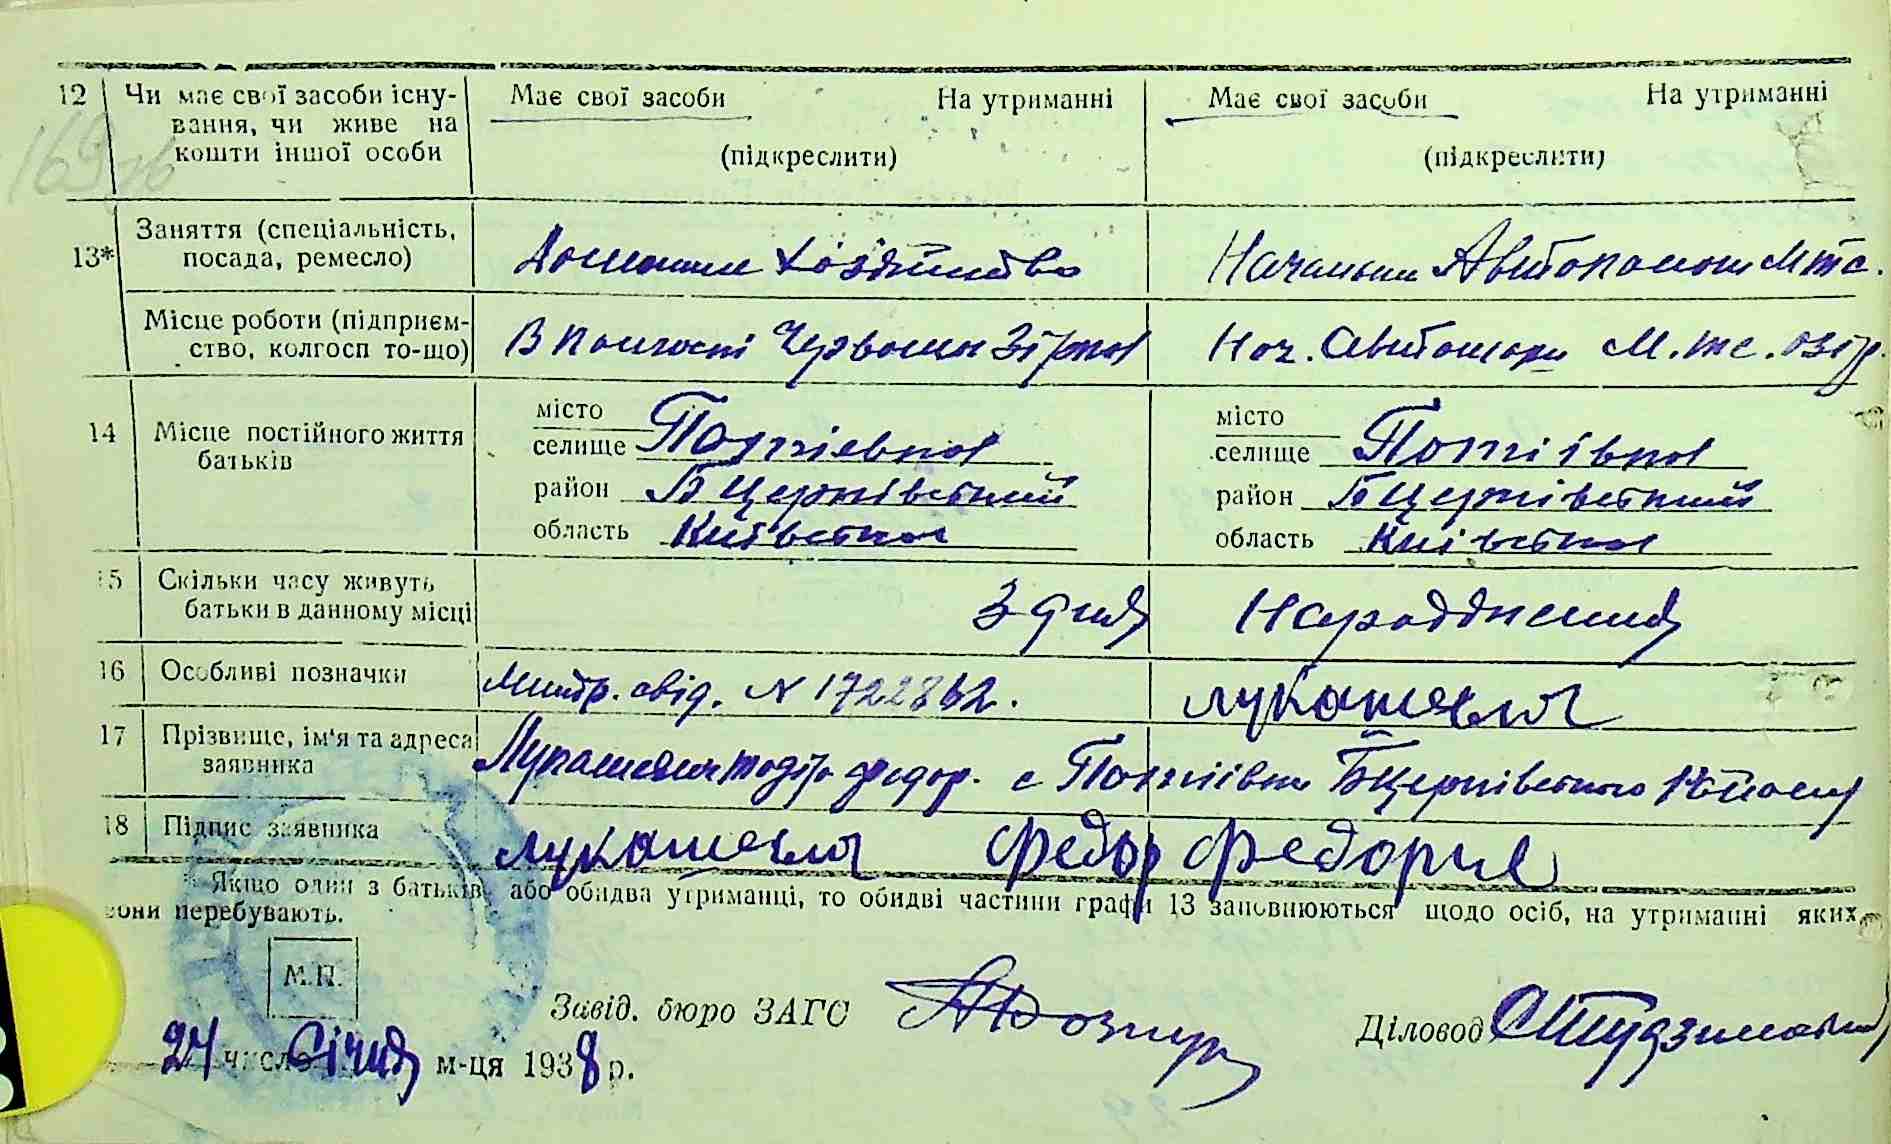 12 Чи має свої засоби існу-
вання, чи живе на
кошти іншої особи
Має свої засоби На утриманні
(підкреслити)
Має свої засоби На утриманні
(підкреслити)
13* Заняття (спеціальність,
посада, ремесло)
Начальни М т с.
Місце роботи (підприєм-
ство, колгосп то-що)
В Червона Зірка
Нач. М. т с.
14 Місце постійного життя
батьків
місто
селище Потіевка
район Б Церківський
область Київська
місто
селище Потіївка
район Б Церківський
область Київська
15 Скільки часу живуть
батьки в данному місці
З дня Народження
16 Особливі позначки
свід. N 1722862.
Лукашевич
17 Прізвище, ім'я та адреса
заявника
Лукашевич федор. с Потіївка Б Церківського Району
18 Підпис заявника
Лукашевич Федор Федорие
* Якщо один з батьків, або обидва утриманці, то обидві частини графи 13 заповнюються щодо осіб, на утриманні яких
вони перебувають.
М.П.
Завід. бюро ЗАГС
Діловод
24 число Січня м-ця 1938 р.